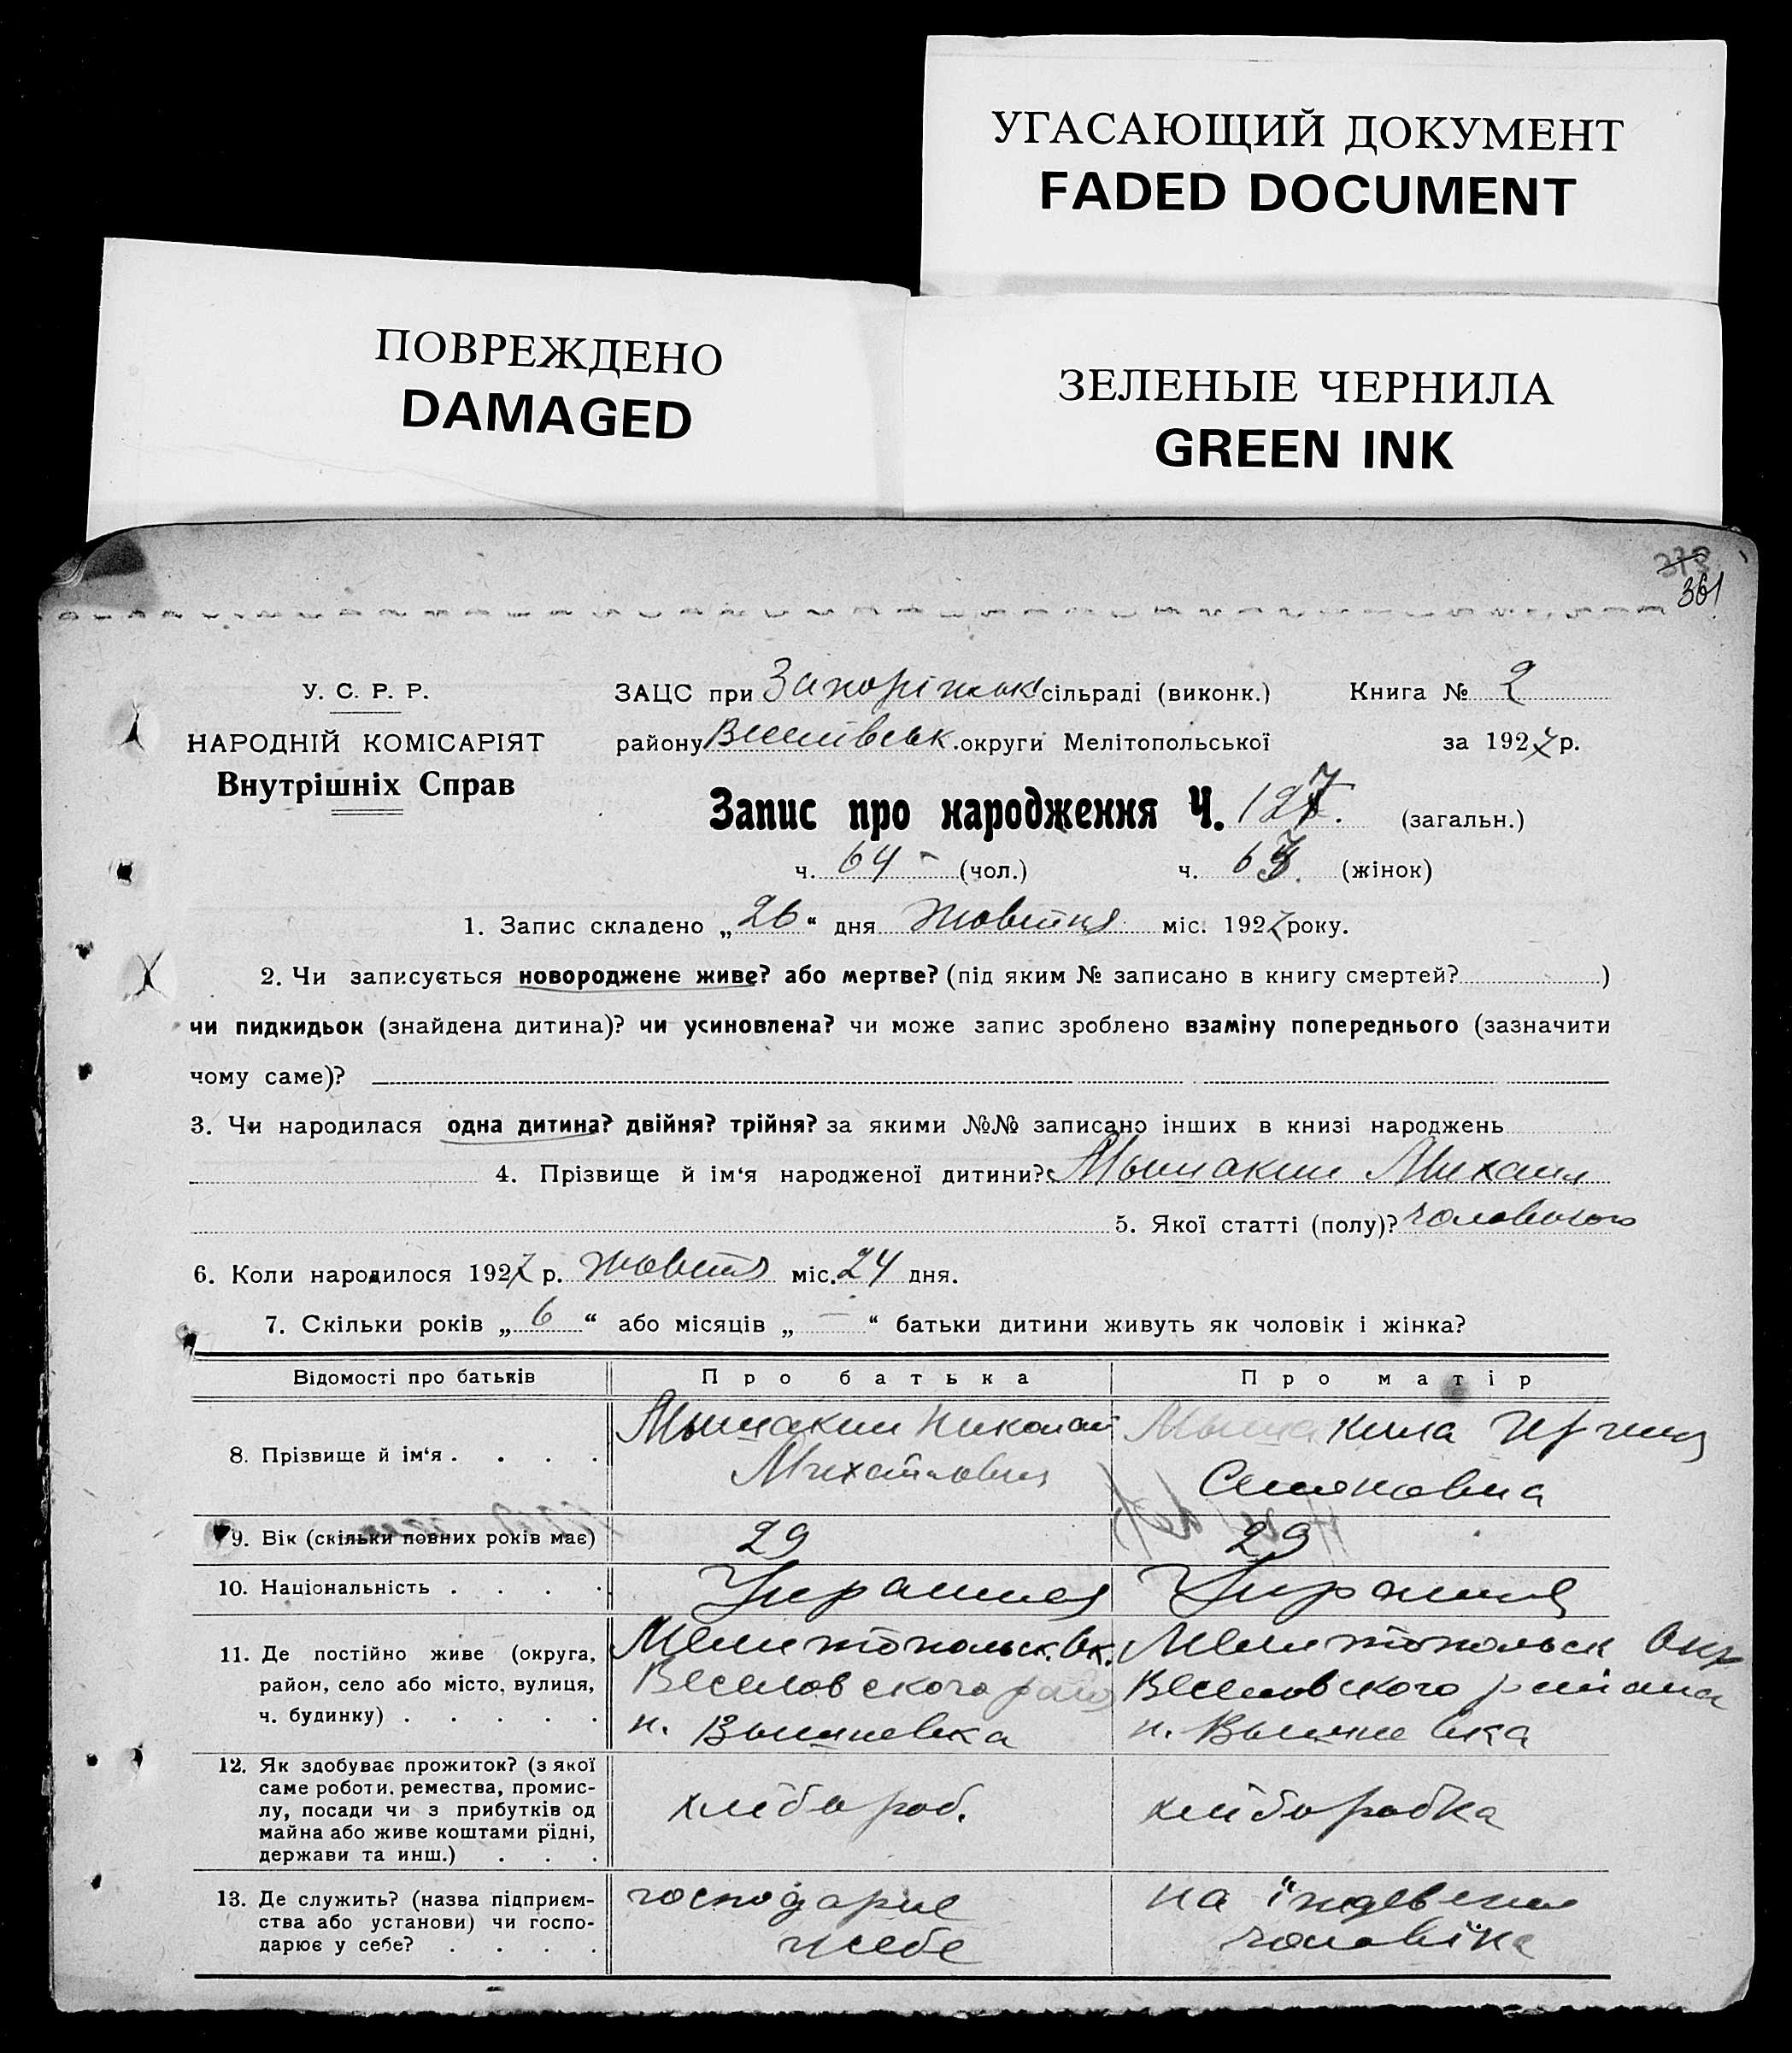 УГАСАЮЩИЙ ДОКУМЕНТ
FADED DOCUMENT
ПОВРЕЖДЕНО
DAMAGED
ЗЕЛЕНЫЕ ЧЕРНИЛА
GREEN INK
373
361
У. С. Р. Р.
НАРОДНІЙ КОМІСАРІЯТ
Внутрішніх Справ
ЗАЦС при Запоріжськ сільраді (виконк.) Книга № 2
району Веселівськ. округи Мелітопольської за 1927 р.
Запис про народження Ч. 127. (загальн.)
ч. 64 - (чол.) ч. 63. (жінок)
1. Запис складено „26“ дня Жовтня міс. 1927 року.
2. Чи записується новороджене живе? або мертве? (під яким № записано в книгу смертей? )
чи пидкидьок (знайдена дитина)? чи усиновлена? чи може запис зроблено взаміну попереднього (зазначити
чому саме)?
3. Чи народилася одна дитина? двійня? трійня? за якими №№ записано інших в книзі народжень
4. Прізвище й ім‘я народженої дитини? Мышакин Михаил
5. Якої статті (полу)? чоловічого
6. Коли народилося 1927 р. Жовтня міс. 24 дня.
7. Скільки років „6“ або місяців „—“ батьки дитини живуть як чоловік і жінка?
Відомості про батьків Про батька Про матір
8. Прізвище й ім‘я . . . .
Мышакин Николай
Михайлович
Мышакина Ирина
Семеновна
9. Вік (скільки повних років має) 29 29
10. Національність . . . . Украинец Украинка
11. Де постійно живе (округа,
район, село або місто, вулиця,
ч. будинку) . . . . .
Мелитопольск. Ок.
Веселовского район
п. Вышневка
Мелитопольск Окр
Веселовского района
п. Вышневка
12. Як здобуває прожиток? (з якої
саме роботи, ремества, промис-
лу, посади чи з прибутків од
майна або живе коштами рідні,
держави та инш.) . . .
хлібороб.
хліборобка
13. Де служить? (назва підприєм-
ства або установи) чи госпо-
дарює у себе? . . . .
господарює
у себе
на
чоловіка